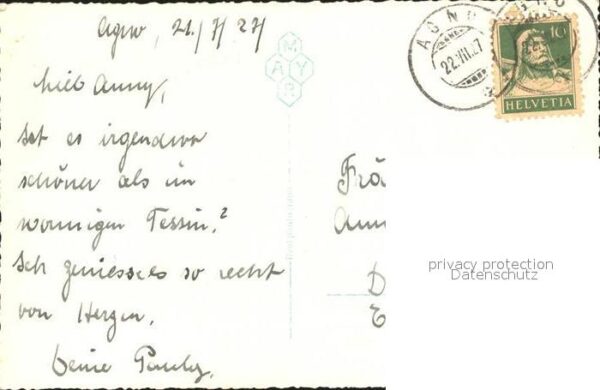 Agno, 21/7/27
AGNO
22.VII.27
10
HELVETIA
M
A Y
R
Lieb Anny,
Ist es irgendwo
schöner als im
wonnigen Tessin?
Ich geniesse es so recht
von Herzen.
Deine Pauly.
Frä
Ann
D
E
privacy protection
Datenschutz